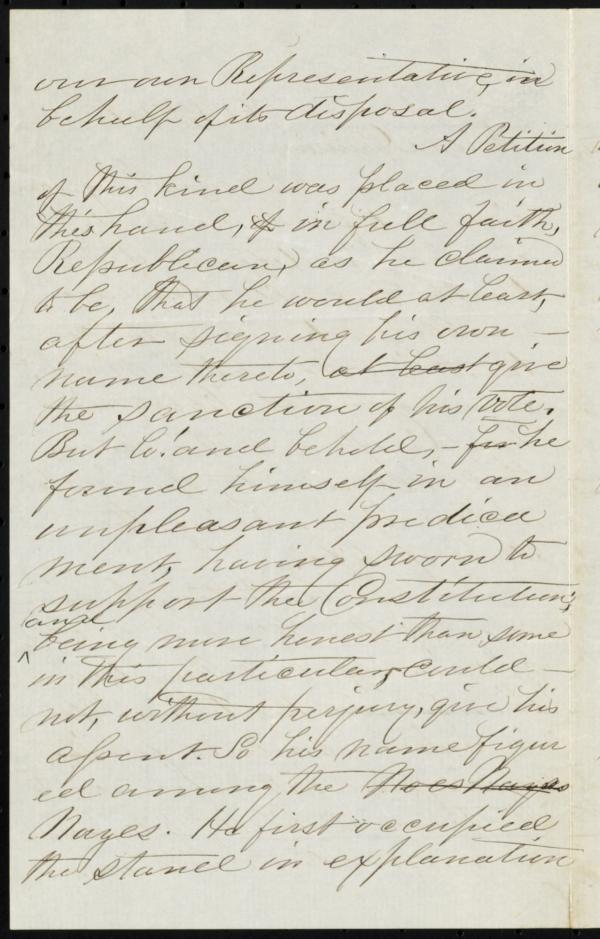 our own Representative, in
behalf of its disposal.
A Petition
of this kind was placed in
his hand, & in full faith,
Republican, as he claimed
to be, that he would at least,
after signing his own
name thereto, at least give
the sanction of his vote.
But lo! and behold, - he
found himself in an
unpleasant predica
ment, having sworn to
support the Constitution,
and
being more honest than some
in this particular, could
not, without perjury, give his
assent. So his name figur
ed among the Noes Nayes
Nayes. He first occupied
the stand in explanation